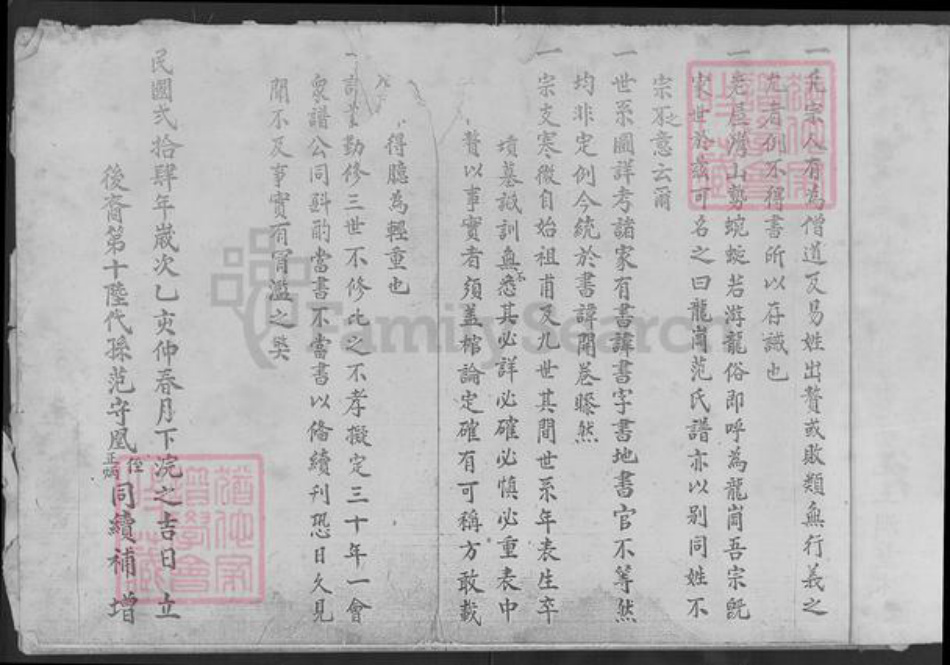 一吾宗人有為僧道及易姓出贅或敗類無行義之
尤者例不得書所以存識也
一老屋灣山勢蜿蜒若游龍俗即呼為龍崗吾宗既
家世於茲可名之曰龍崗范氏譜亦以別同姓不
宗之意云爾
一世系圖詳考諸家有書諱書字書地書官不等然
均非定例今統於書諱開卷瞭然
一宗支寒微自始祖甫及九世其間世系年表生卒
墳墓誌訓無不悉其必詳必確必慎必重表中
贅以事實者須蓋棺論定確有可稱方敢載
入 得臆為輕重也
一 勤修三世不修比之不孝擬定三十年一會
衆譜公同斟酌當書不當書以俻續刊恐日久見
聞不及事實有冒濫之獘
民國弍拾肆年嵗次乙亥仲春月下浣之吉日 立
後裔第十陸代孫范守凰 侄正 同續補增
FamilySearch